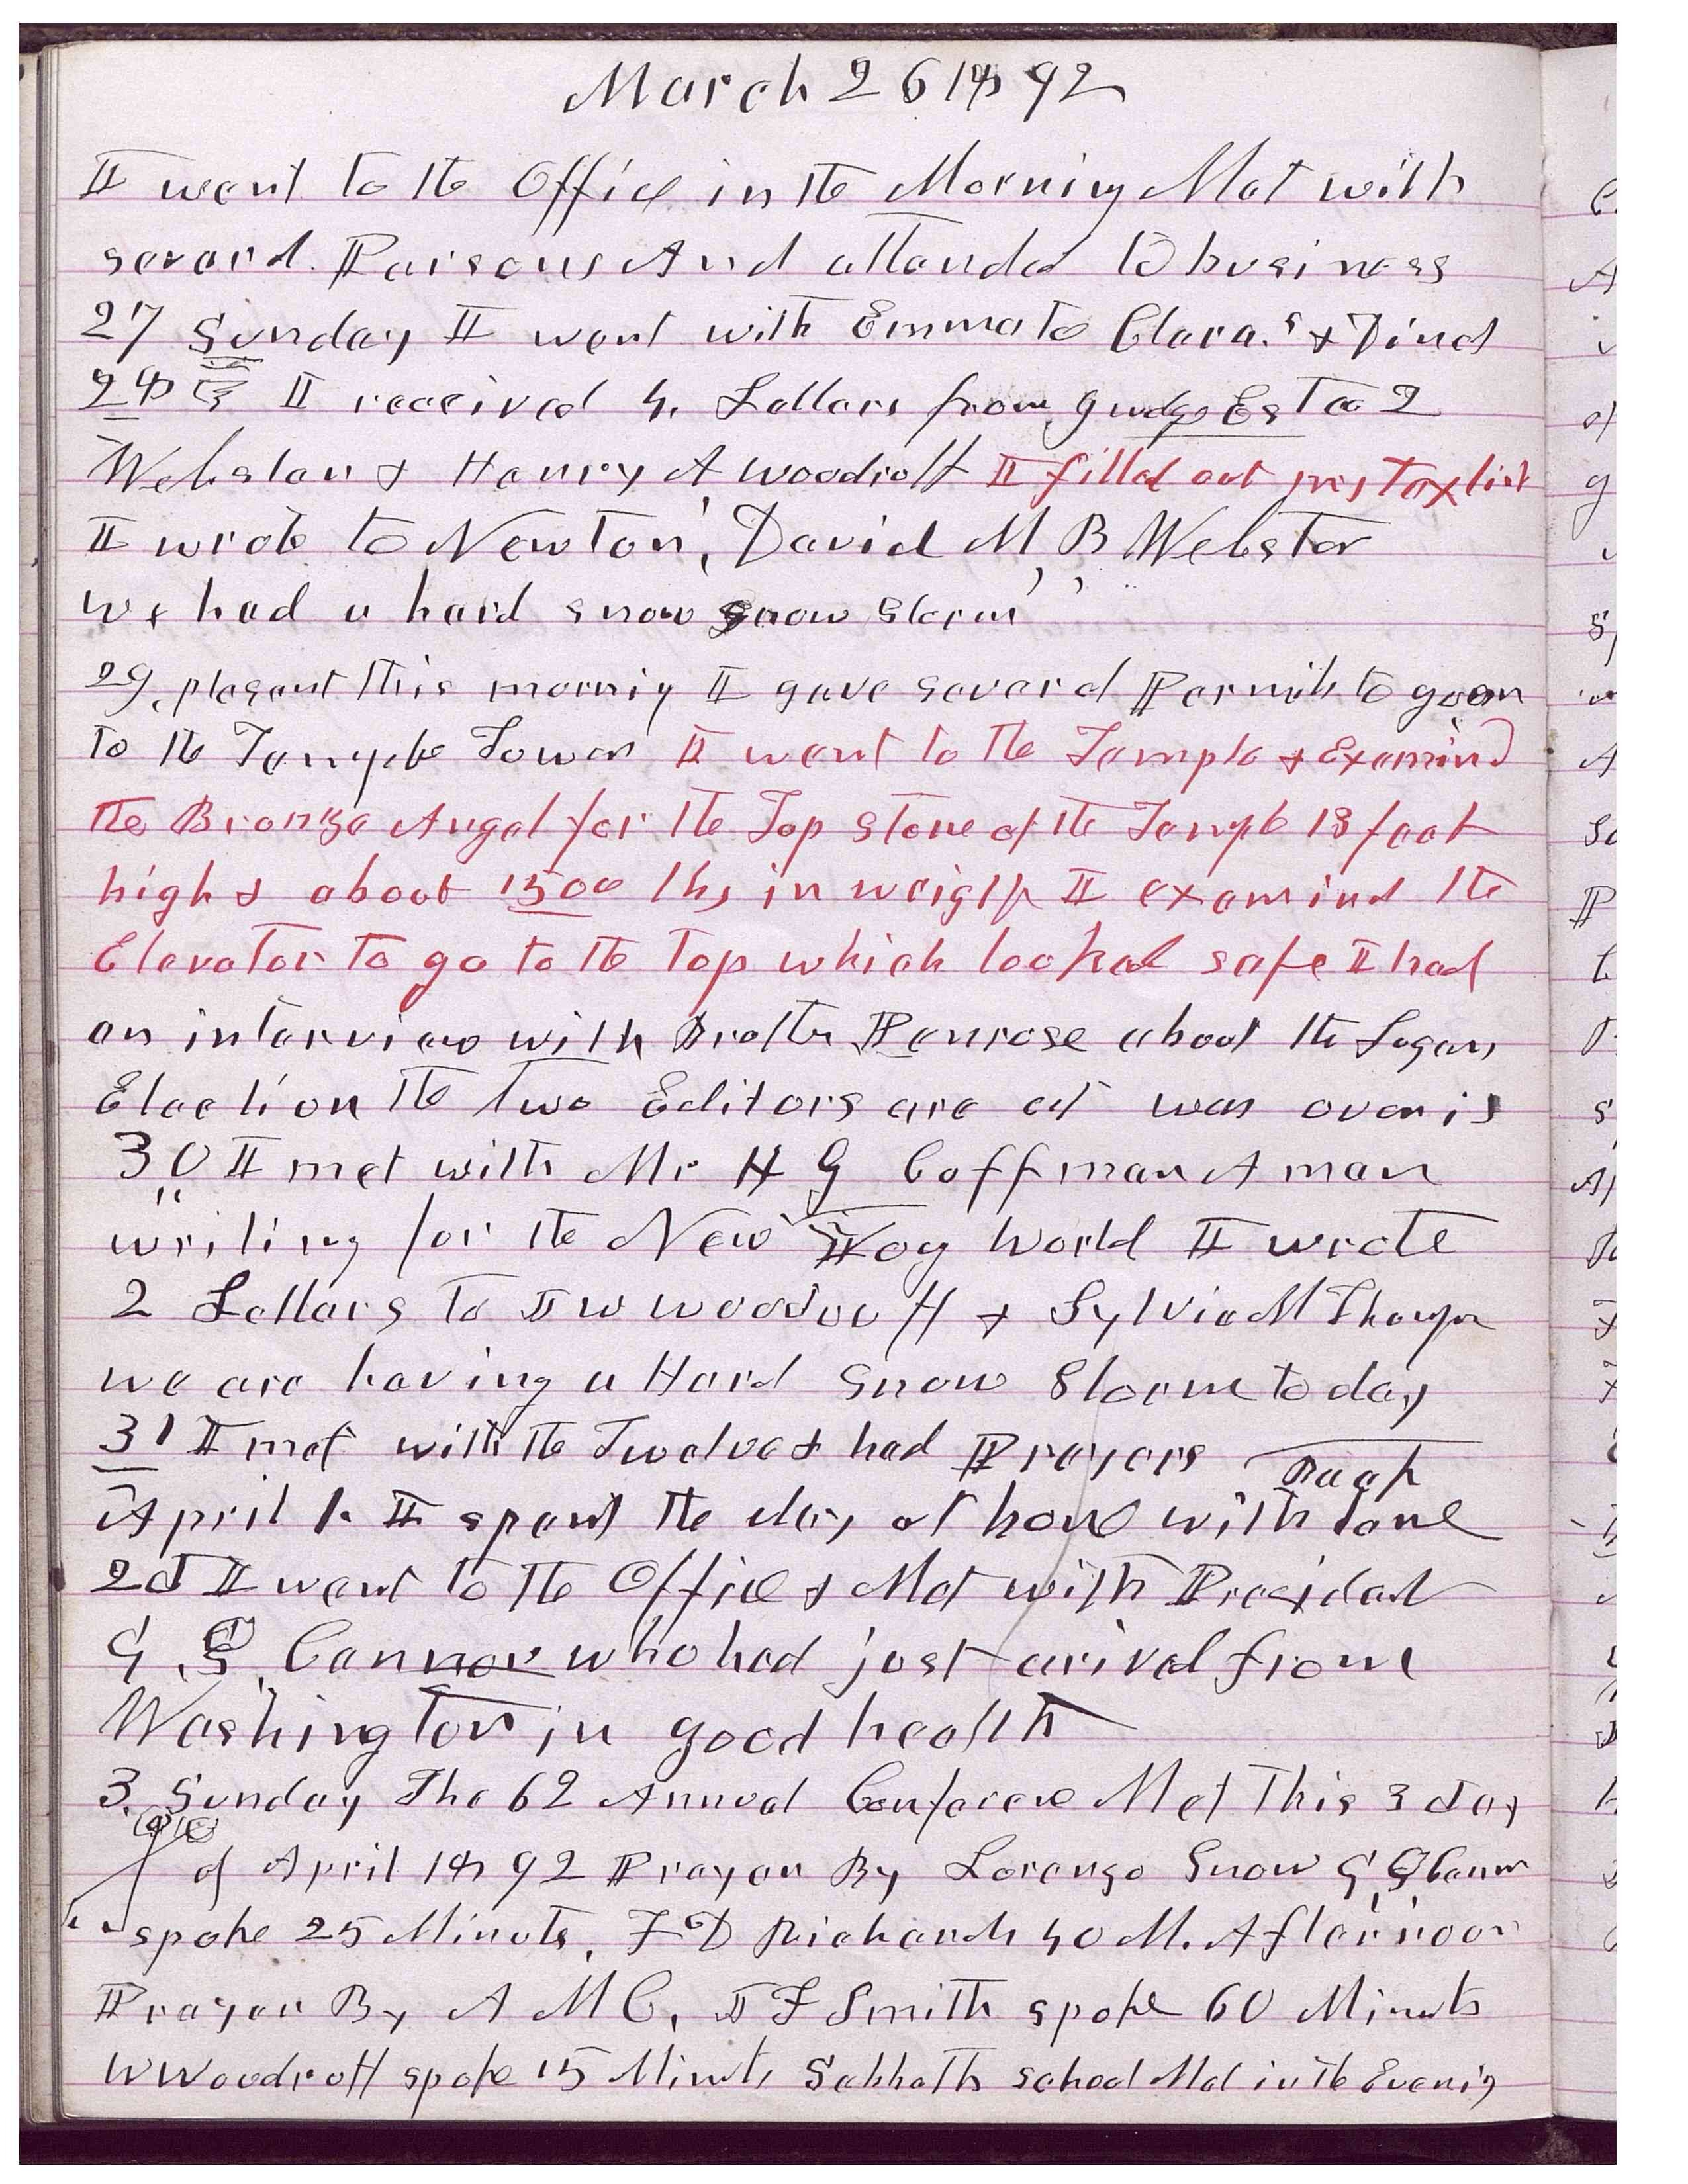 March 26 1892
I went to the Office in the Morning Met with
several Persons And attended to business
27 Sunday I went with Emma to Clara.s & Dined
28 I received 4. Letters from Judge Es Tee 2
Webster & Henry A Woodruff I filled out my Tax list
I wrote to Newton, David M, B Webster
we had a hard snow snow storm
29, plesant this morning I gave several Permits to go on
to the Temple Tower I went to the Temple & Examind
the Bronze Angel for the Top Stone of the Temple 13 feet
high & about 1500 lbs in weight I examind the
Elevator to go to the top which looked safe I had
an interview with Brother Penrose about the Logan
Election the two Editors are at
30 I met with Mr H G Coffman A man
writing for the New York World I wrote
2 Letters to I W Woodruff & Sylvia M Thomp
we are having a Hard Snow Storm to day
31 I met with the Twelve & had Prayers
April 1. I spent the day at home with
2d I went to the Office & Met with President
G. Q. Cannon who had just arived from
Washington in good health
3. Sunday The 62 Annual Conferece Met This 3 day
of April 1892 Prayer By Lorenzo Snow G Q Cann
spoke 25 Minuts, F D Richards 40 M. Afternoon
Prayer By A M C, J F Smith spoke 60 Minuts
W Woodruff spoke 15 Minuts Sabbath School Met in the Evenig